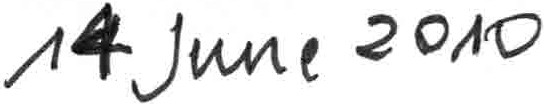 14 June 2010